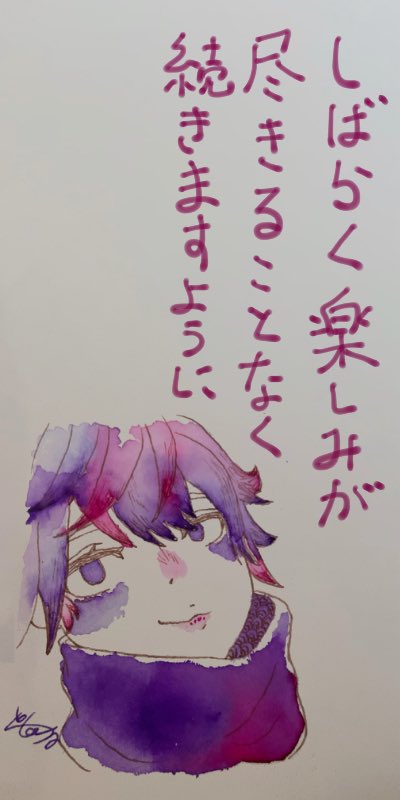 しばらく楽しみが
尽きることなく
続きますように